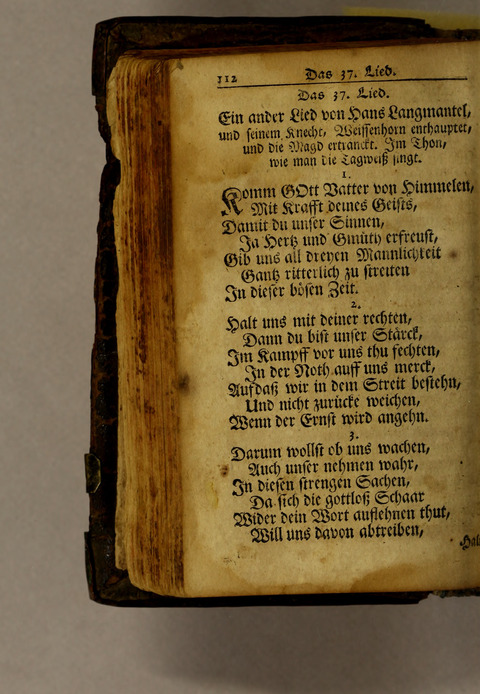 112 Das 37. Lied.
Das 37. Lied.
Ein ander Lied von Hans Langmantel,
und seinem Knecht, Weissenhorn enthauptet,
und die Magd ertränckt. Im Thon,
wie man die Tagweiß singt.
1.
Komm GOtt Vatter von Himmelen,
Mit Krafft deines Geists,
Damit du unser Sinnen,
Ja Hertz und Gmüth erfreust,
Gib uns all dreyen Mannlichkeit
Gantz ritterlich zu streiten
In dieser bösen Zeit.
2.
Halt uns mit deiner rechten,
Dann du bist unser Stärck,
Im Kampff vor uns thu fechten,
In der Noth auff uns merck,
Aufdaß wir in dem Streit bestehn,
Und nicht zurücke weichen,
Wenn der Ernst wird angehn.
3.
Darum wollst ob uns wachen,
Auch unser nehmen wahr,
In diesen strengen Sachen,
Da sich die gottloß Schaar
Wider dein Wort auflehnen thut,
Will uns davon abtreiben,